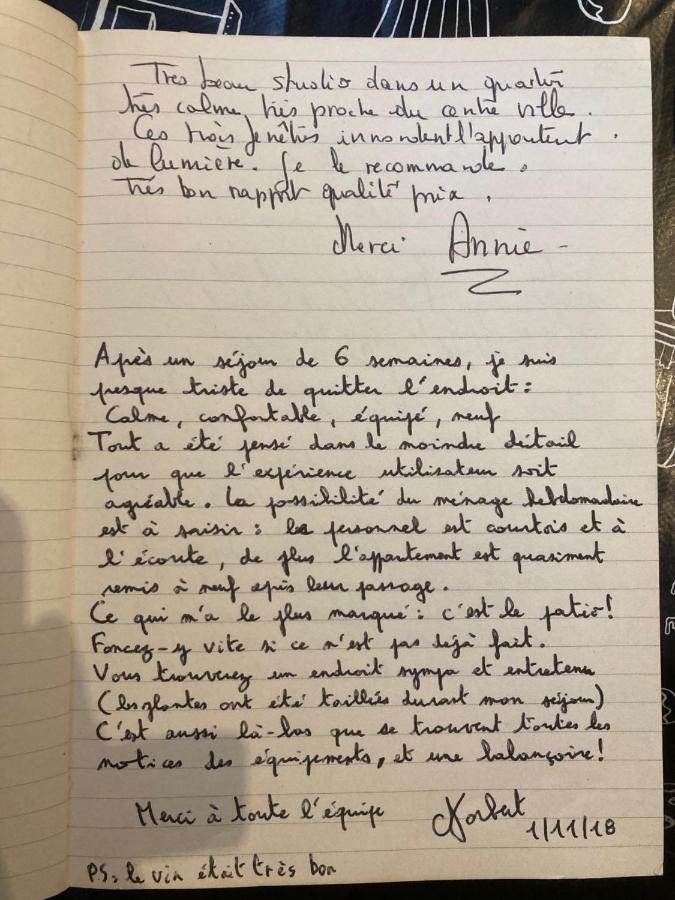 Très beau studio dans un quartier
très calme, très proche du centre ville.
Ces trois fenêtres innondent l'appartement.
de lumière. Je le recommande.
très bon rapport qualité prix.
Merci Annie -
Après un séjour de 6 semaines, je suis
presque triste de quitter l'endroit :
Calme, confortable, équipé, neuf
Tout a été pensé dans le moindre détail
pour que l'expérience utilisateur soit
agréable. La possibilité du ménage hebdomadaire
est à saisir : le personnel est courtois et à
l'écoute, de plus l'appartement est quasiment
remis à neuf après leur passage.
Ce qui m'a le plus marqué : c'est le patio !
Foncez-y vite si ce n'est pas déjà fait.
Vous trouverez un endroit sympa et entretenu
(les plantes ont été taillées durant mon séjour)
C'est aussi là-bas que se trouvent toutes les
notices des équipements, et une balançoire !
Merci à toute l'équipe Norbert
1/11/18
PS: le vin était très bon